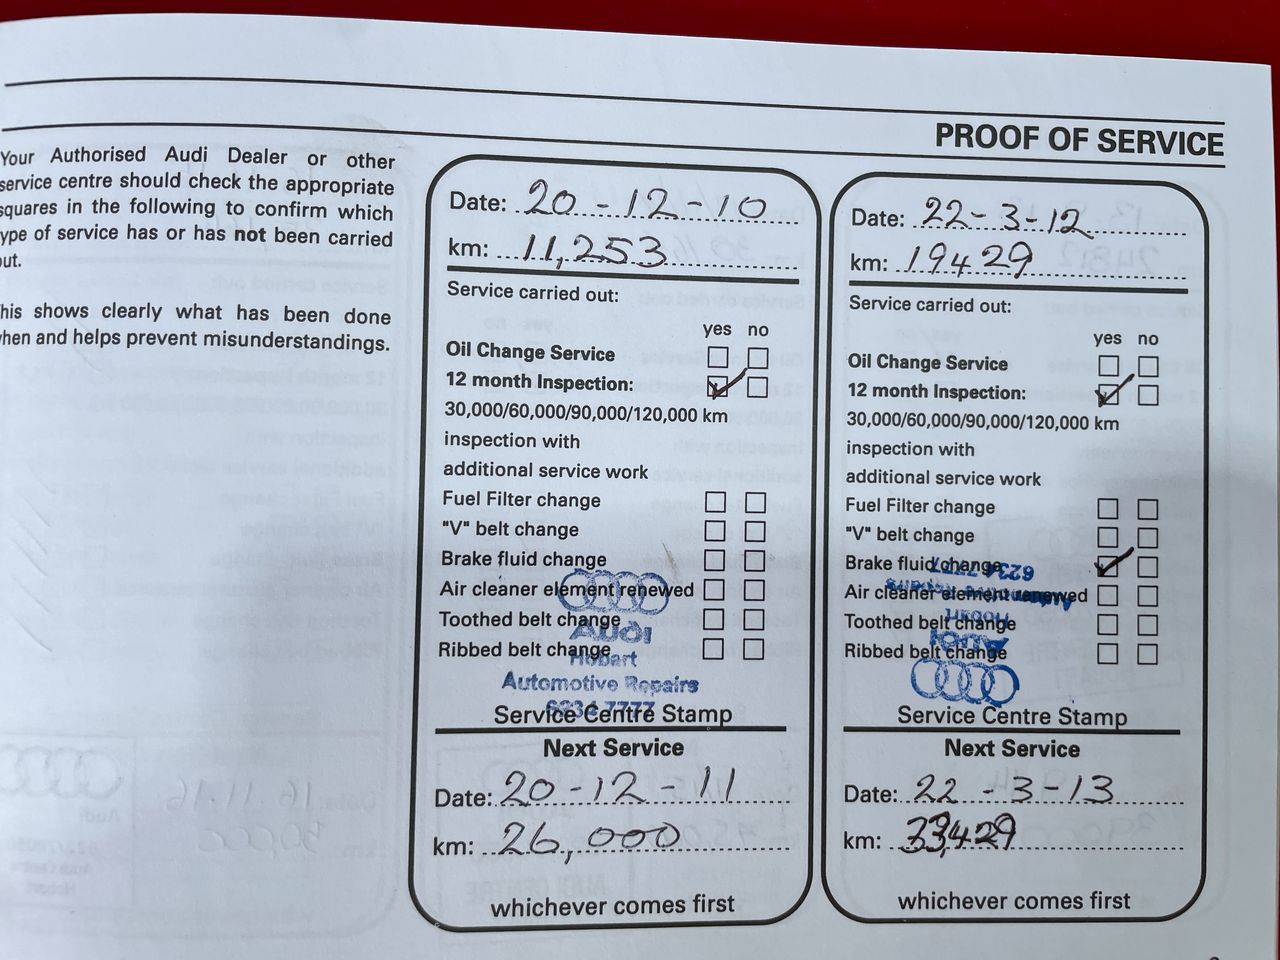 PROOF OF SERVICE
Your Authorised Audi Dealer or other
service centre should check the appropriate
squares in the following to confirm which
type of service has or has not been carried
out.
This shows clearly what has been done
when and helps prevent misunderstandings.
Date: 20-12-10
km: 11,253
Service carried out:
yes no
Oil Change Service
12 month Inspection:
30,000/60,000/90,000/120,000 km
inspection with
additional service work
Fuel Filter change
"V" belt change
Brake fluid change
Air cleaner element renewed
Toothed belt change
Audi
Ribbed belt change
Hobart
Automotive Repairs
6234 7777
Service Centre Stamp
Next Service
Date: 20-12-11
km: 26,000
whichever comes first
Date: 22-3-12
km: 19429
Service carried out:
yes no
Oil Change Service
12 month Inspection:
30,000/60,000/90,000/120,000 km
inspection with
additional service work
Fuel Filter change
"V" belt change
Brake fluid change
6234 7777
Air cleaner element renewed
Automotive Repairs
Hobart
Toothed belt change
Audi
Ribbed belt change
Service Centre Stamp
Next Service
Date: 22-3-13
km: 33,429
whichever comes first